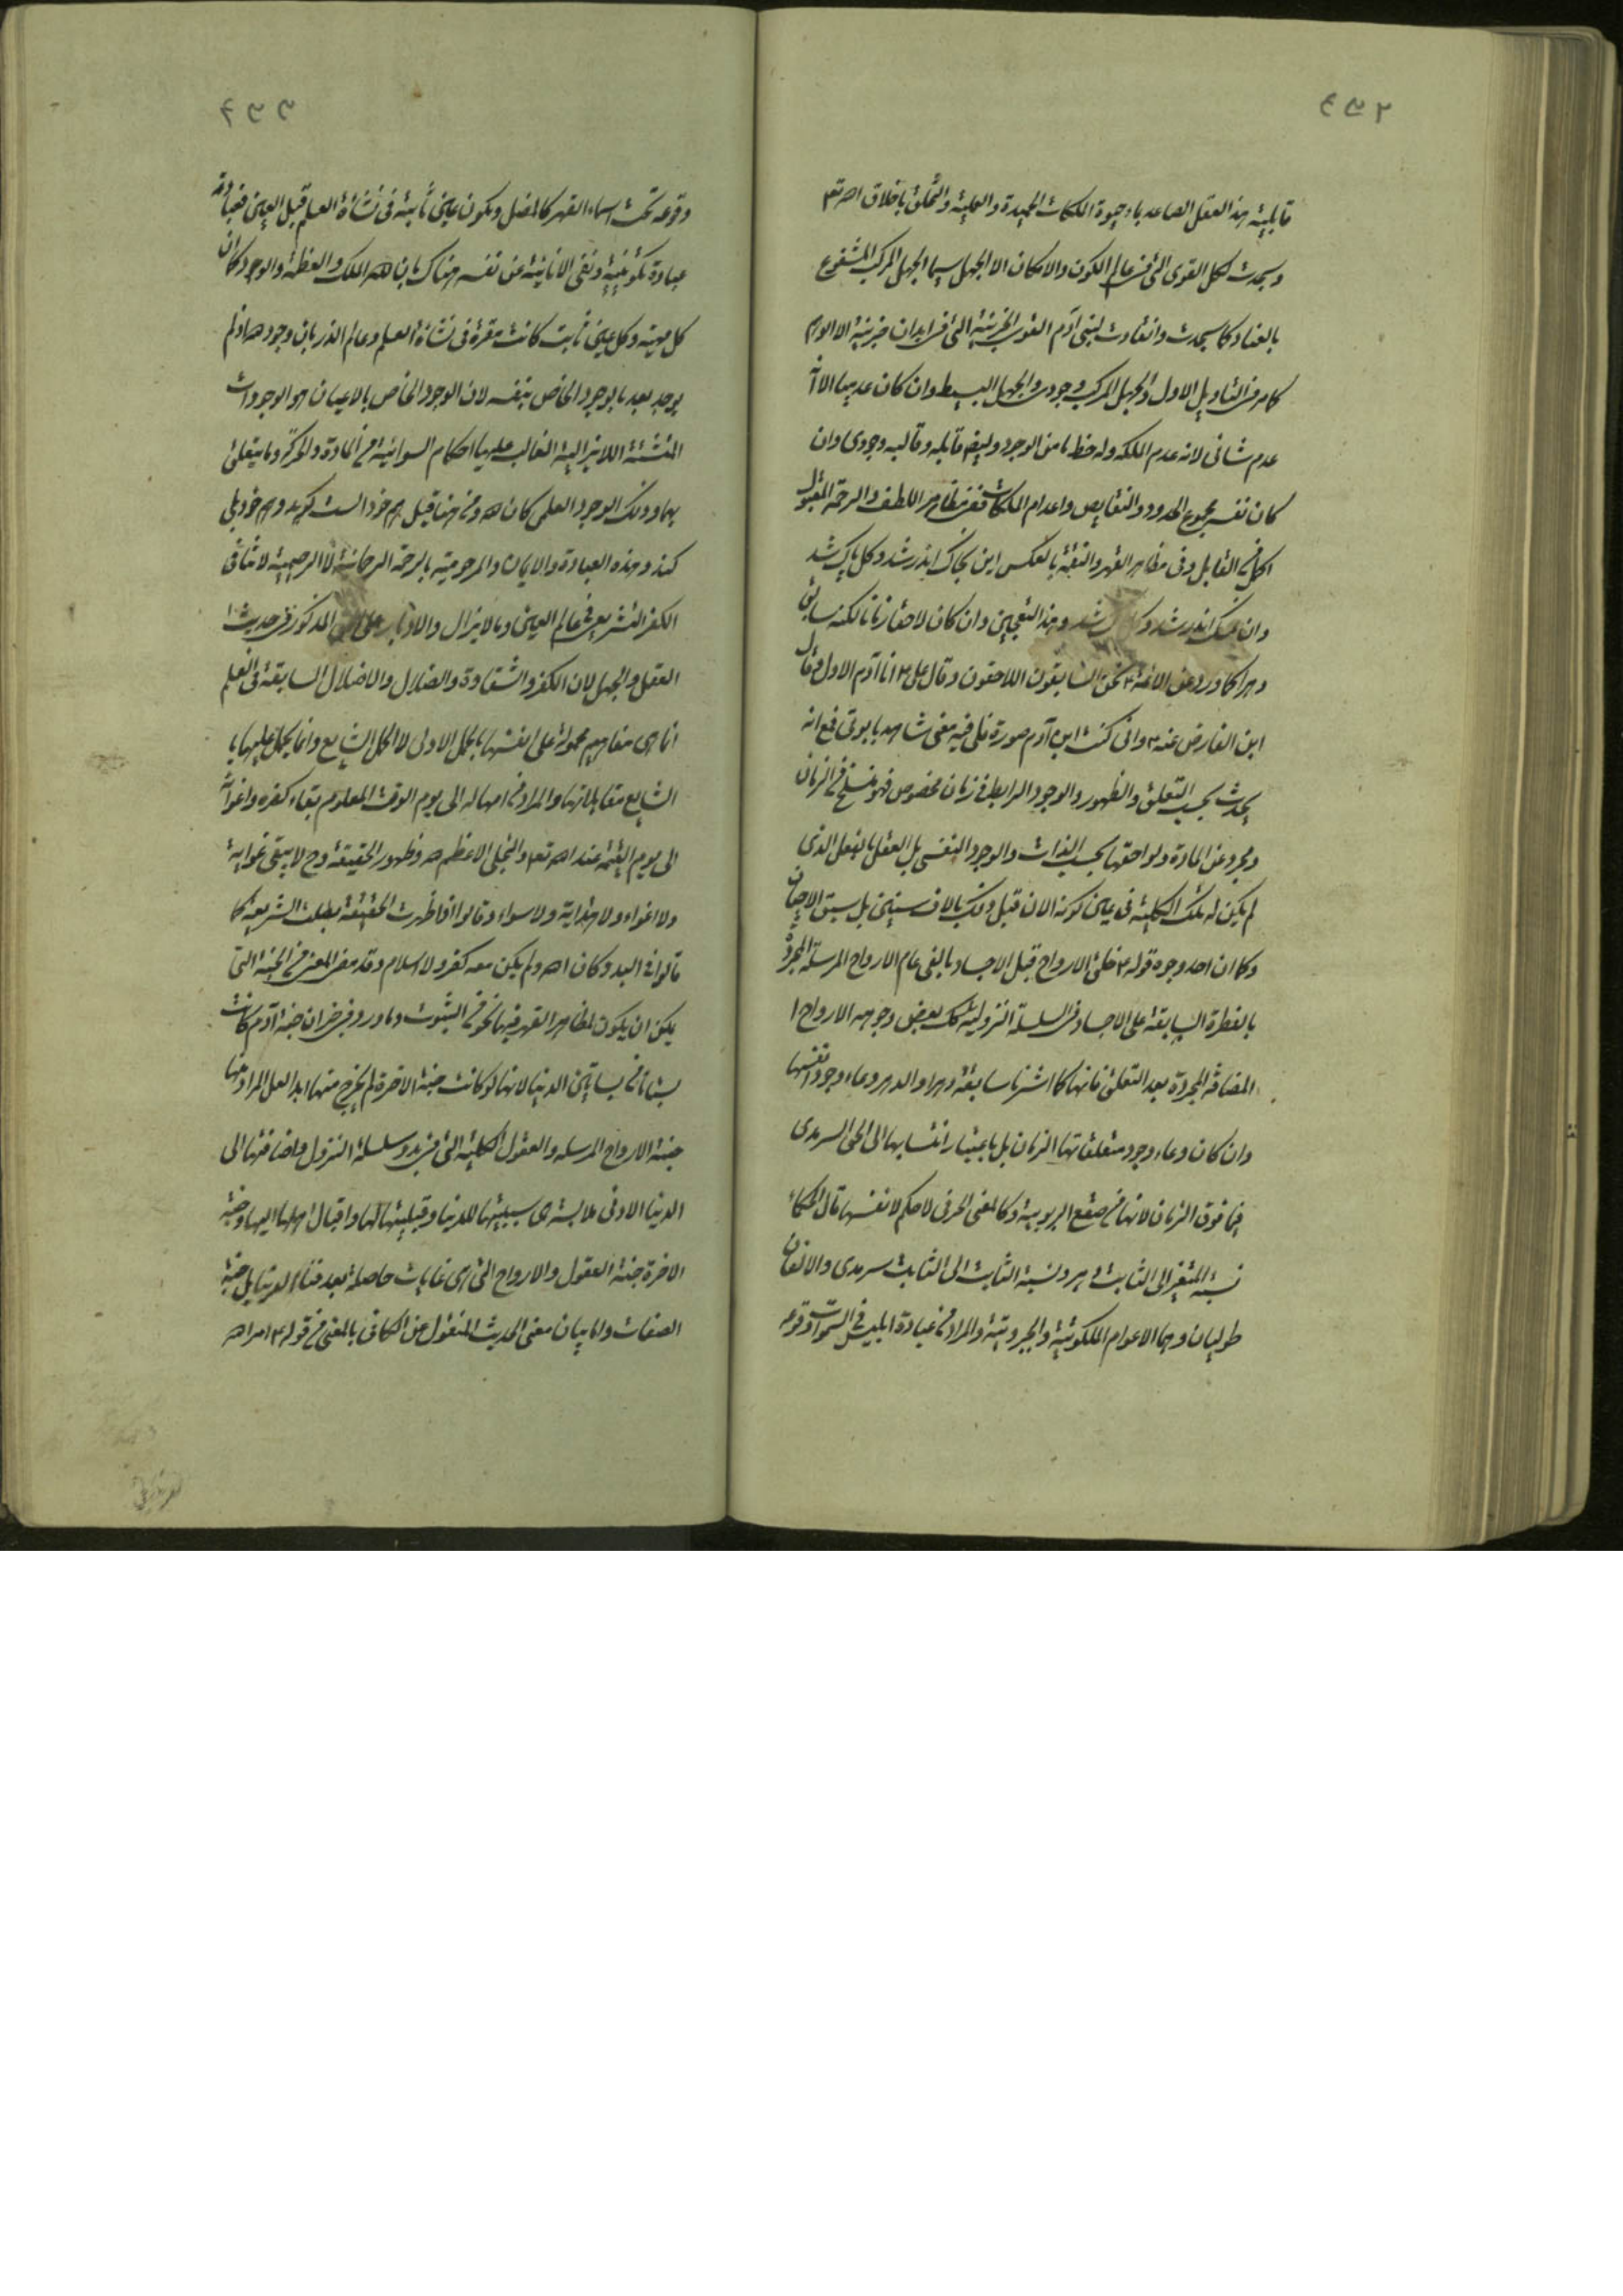 قابلية هذا العقل الصاعد باوجوه الملكات الحميدة والعملية والتخلق باخلاق الله تع
وسجدت لكل القوى التى فى عالم الكون والامكان الا الجهل سيما الجهل المركب المشفوع
بالعناد كما سجدت وانقادت لبنى آدم القوى الجزئية التى فى ابدان جزئية الا الوهم
كما مر فى التاويل الاول والجهل المركب وجودى والجهل البسيط وان كان عدميا الا
عدم شانى لانه عدم الملكة وله حظ ما من الوجود وايضا قابله وقالبه وجودى وان
كان نفسه مجموع الحدود والنقايص واعدام الملكات ففى مظاهر اللطف والرحمة المقبول
القابل وفى مظاهر القهر والنقمة بالعكس اين بخاك اندر شد وكل پاك شد
وان نمك اندر شد شد وهذا التعجين وان كان لاحقا زمانا لكنه سابق
دهرا كما ورد عن الائمة نحن السابقون اللاحقون وقال على ع انا آدم الاول وقال
ابن الفارض عنه وانى كنت ابن آدم صورة فلى فيه معنى شاهد بابوتى فع انه
يحدث بحسب التعلق والظهور والوجود الرابط فى زمان مخصوص فهو منسلخ عن الزمان
ومجرد عن المادة ولواحقها بحسب الذات والوجود النفسى بل العقل بالفعل الذى
لم يكن له تلك الكلية فى عين كونه الان قبل ذلك بالاف سنين بل سبق الاحيان
وكما ان احد وجوه قوله ع خلق الارواح قبل الاجساد بالفى عام الارواح المرسلة المجردة
بالفطرة السابقة على الاجساد فى السلسلة النزولية كك بعض وجوهه الارواح ا
المضافة المجردة بعد التعلق فانها كما اشرنا سابقة دهرا والدهر وعاء وجود انفسها
وان كان وعاء وجود متعلقاتها الزمان بل باعتبار انتسابها الى الحى السرمدى
فيما فوق الزمان لانها من صقع الربوبية وكالمعنى الحرفى لا حكم لانفسها قال الحكماء
نسبة المتغير الى الثابت دهر ونسبة الثابت الى الثابت سرمدى والالفان
طوليان وهما الاعوام الملكوتية والجبروتية والمراد من عبادة ابليس فى السموات وقوعه
وقوعه تحت اسماء القهر كالمضل وبكون عينى ثابتة فى نشاة العلم قبل العين فعبادته
عبادة تكوينية ونفى الانانية عن نفسه هناك بان لله الملك والعظمة والوجود كان
كل مهية وكل عين ثابت كانت مقرة فى نشاة العلم وعالم الذر بان وجوده اذ لم
يوجد بعد بالوجود الخاص بنفسه لان الوجود الخاص بالاعيان هو الوجودات
المتشتتة اللايزالية الغالب عليها احكام السوائية من المادة والحركة وما يتعلق
بهما وذلك الوجود العلمى كان لله ومن هنا قيل هم خود الست كويد وهم خود بلى
كند وهذه العبادة والايمان والمرحومية بالرحمة الرحمانية لا الرحيمية لا تنافى
الكفر التشريعى فى عالم العين وما لا يزال والادبار على المذكور فى حديث
العقل والجهل لان الكفر والشقاوة والضلال والاضلال السابقة فى العلم
انما هى مفاهيم محمولة على انفسها بالحمل الاولى لا الحمل الشايع وانما يحمل عليها با
الشايع مقابلاتها والمراد من امهاله الى يوم الوقت المعلوم بقاء كفره واغوائه
الى يوم القيمة عند الله تعالى والتجلى الاعظم لله وظهور الحقيقة وح لا يبقى غواية
ولا اغواء ولا هداية ولا سواء وقالوا اذا ظهرت الحقيقة بطلت الشريعة كما
قالوا فى البدو كان الله ولم يكن معه كفر ولا اسلام وقد من الجنة التى
يمكن ان يكون لمظاهر القهر فيها نحو من الثبوت وما ورد فى ان جنة آدم كانت
بستانا من بساتين الدنيا لانها لو كانت جنة الاخرة لم يخرج منها ابدا لعل المراد بها
جنة الارواح المرسله والعقول الكلية التى فى بدو سلسلة النزول واضافتها الى
الدنيا لادنى ملابسة هى سببيتها للدنيا وقبليتها لها واقبال اهلها اليها وجنة
الاخرة جنة العقول والارواح التى هى غايات حاصلة بعد فناء الدنيا بل جنة
الصفات واما بيان معنى الحديث المنقول عن الكافى بالمعنى من قوله ع امر الله